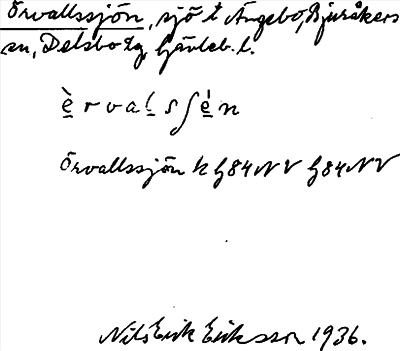 Örvallssjön, sjö t Ängebo, Bjuråkers
sn, Delsbo tg, Gävleb. l.
è̲ r v a l̲ s ʃ é̲ n
Örvallssjön k G84NV G84NV
Nils Erik Eriksson 1936.